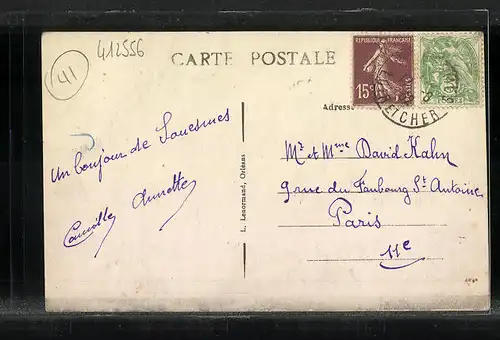 412556
41
CARTE POSTALE
REPUBLIQUE FRANÇAISE
15c
ETCHER
Adresse
Un bonjour de Souesmes
Camille Annette
L. Lenormand, Orléans
Mr et Mme David Kahn
9 rue du Faubourg St Antoine
Paris
11e